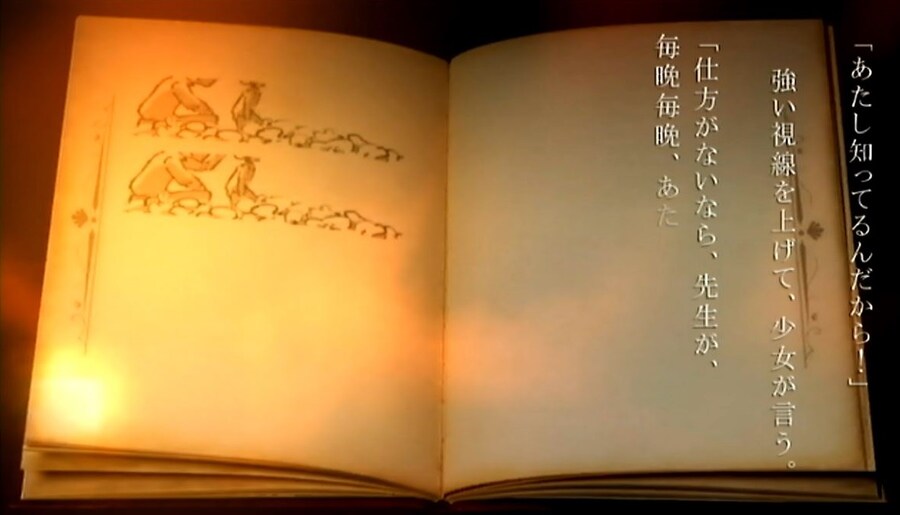 「あたし知ってるんだから！」
強い視線を上げて、少女が言う。
「仕方がないなら、先生が、
毎晩毎晩、あた